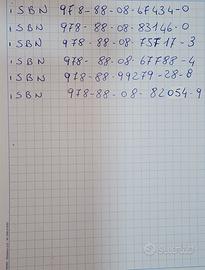 ISBN 978-88-08-67434-0
ISBN 978-88-08-83146-0
ISBN 978-88-08-75717-3
ISBN 978-88-08-67788-4
ISBN 978-88-99279-28-8
ISBN 978-88-08-82054-9